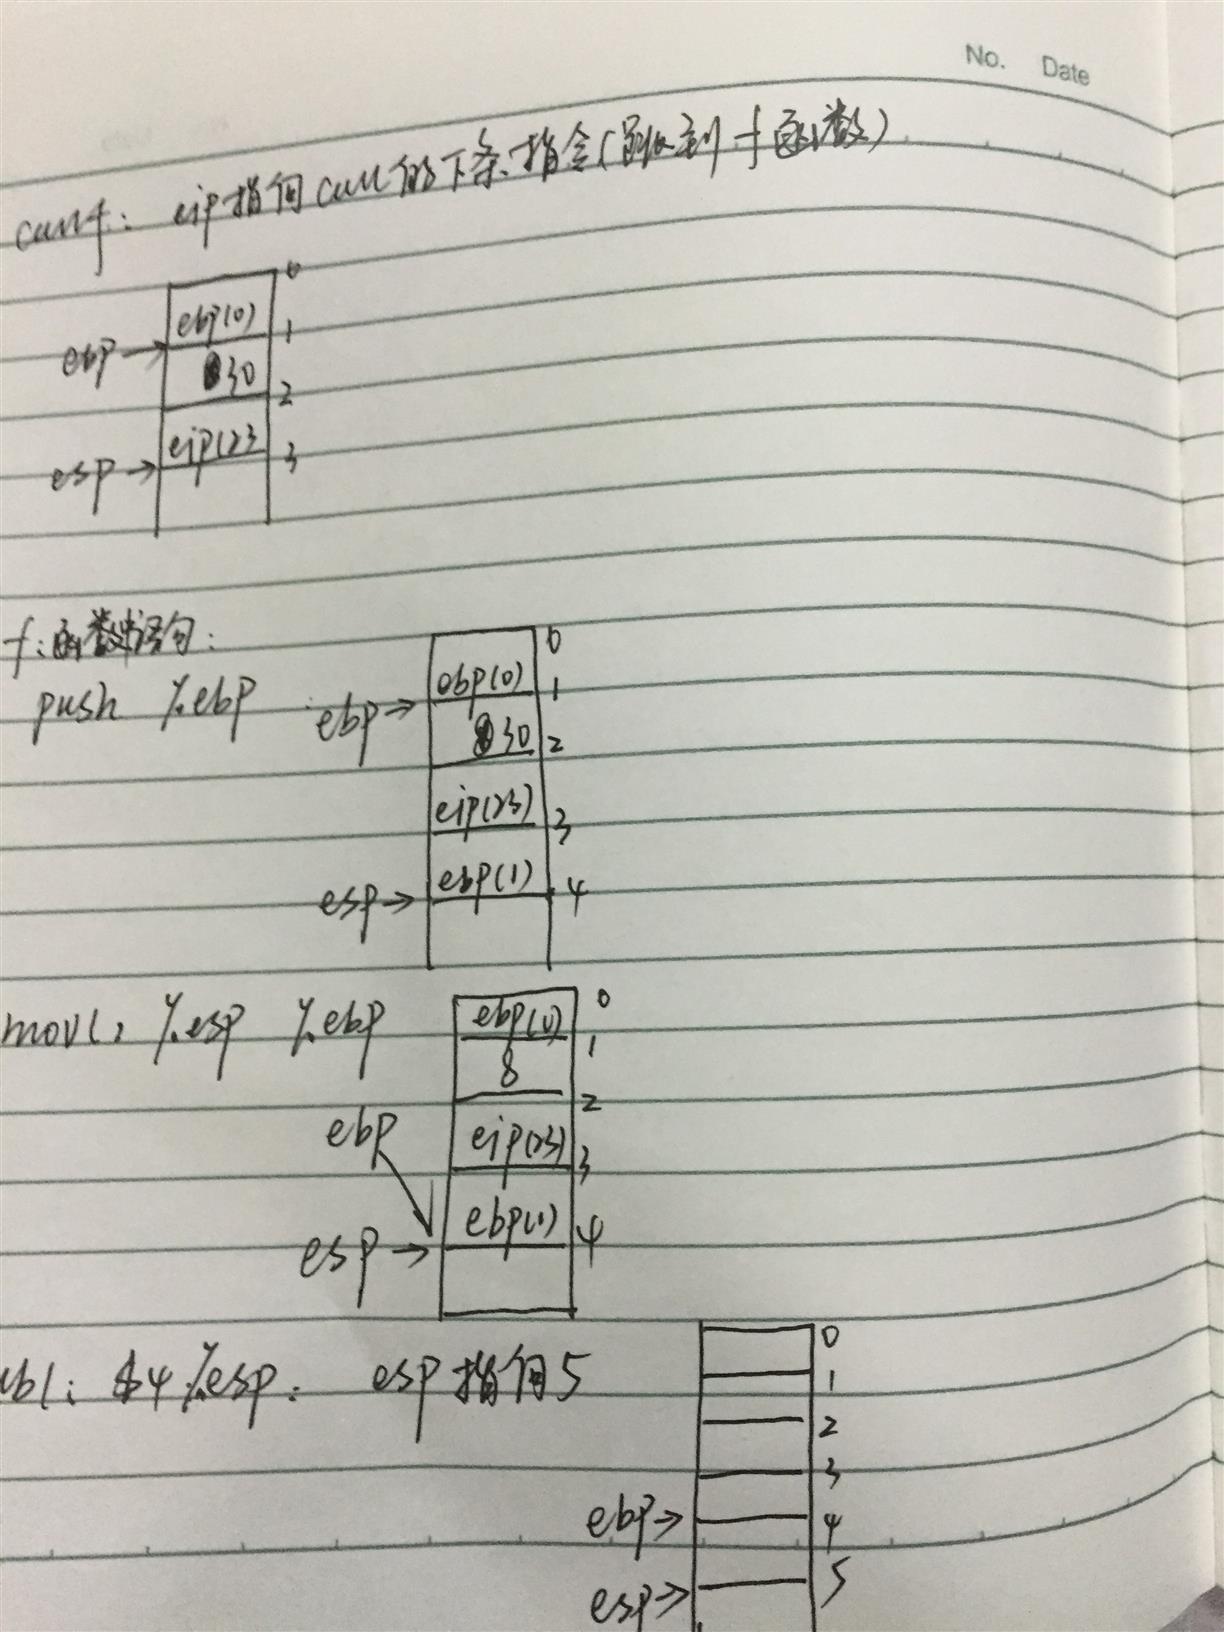 No. Date
call f: eip指向call的下条指令(跳到f函数)
0
ebp(0)
ebp→ 1
30
2
eip(23
esp→ 3
f:函数语句:
0
push %ebp ebp→ ebp(0) 1
30 2
eip(23) 3
esp→ ebp(1) 4
movl: %esp %ebp ebp(0) 0
1
8
2
ebp eip(23) 3
ebp(1)
esp→ 4
0
ubl: $4 %esp: esp指向5 1
2
3
ebp→ 4
esp→ 5